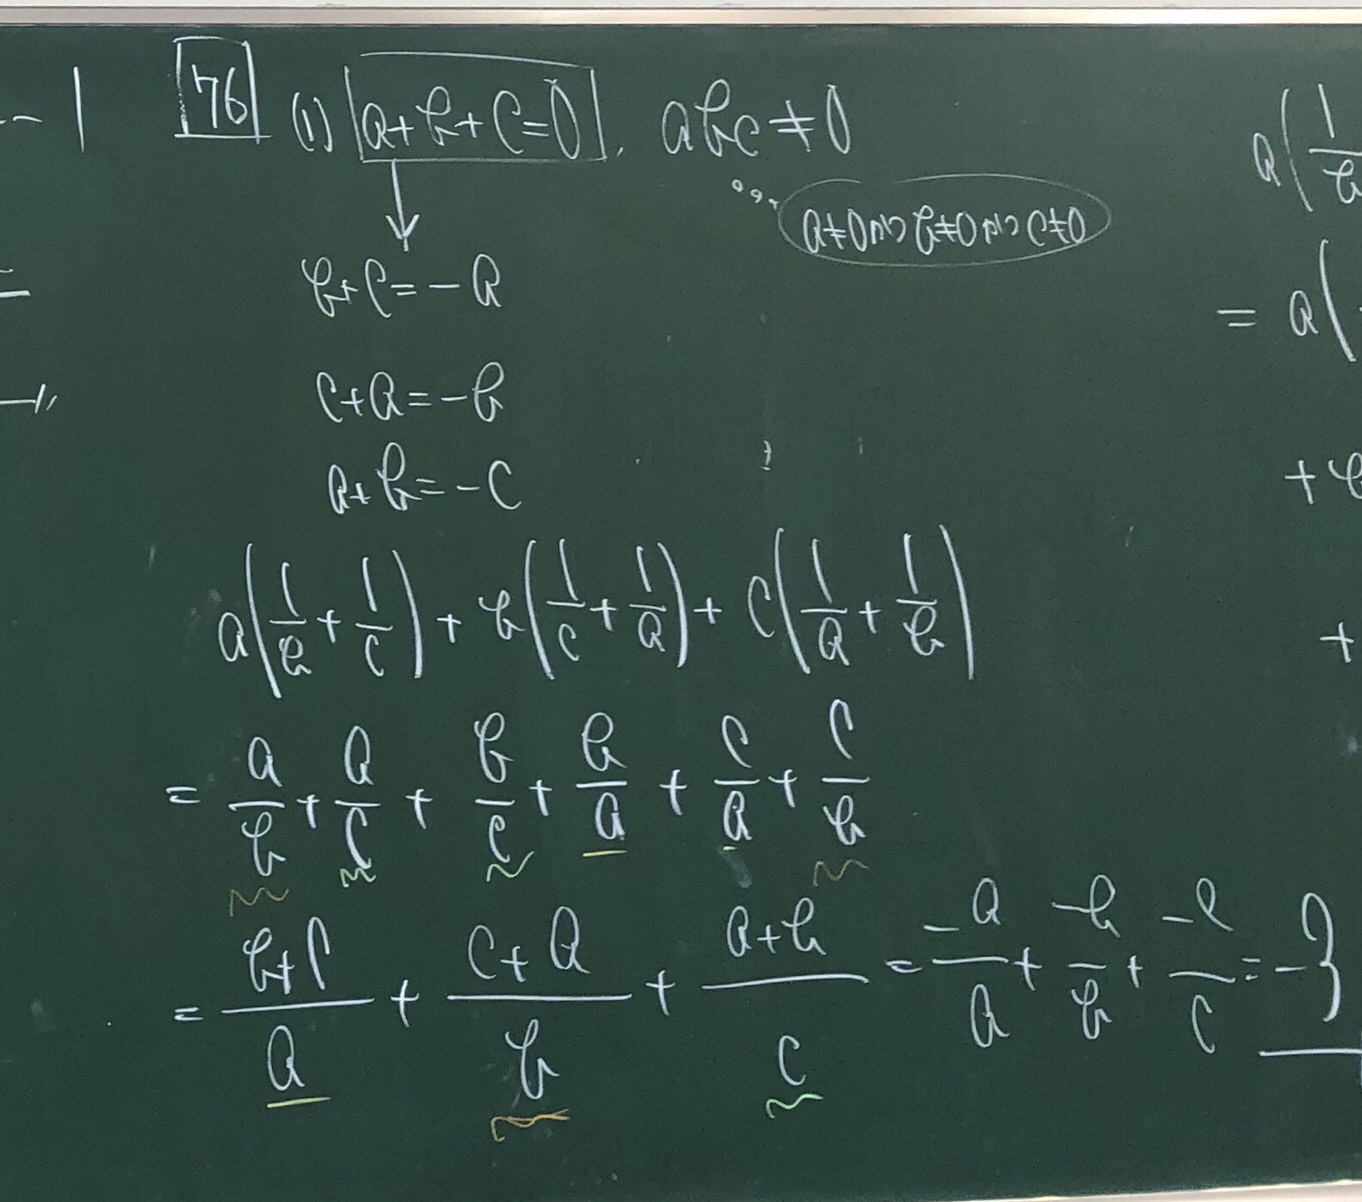 -- 1
76 (1) a+b+c=0, abc≠0
a≠0かつb≠0かつc≠0
b+c=-a
c+a=-b
a+b=-c
a(1/b+1/c)+b(1/c+1/a)+c(1/a+1/b)
=a/b+a/c+b/c+b/a+c/a+c/b
=(b+c)/a+(c+a)/b+(a+b)/c=-a/a+-b/b+-c/c=-3
a(1/b
=a(
+b
+